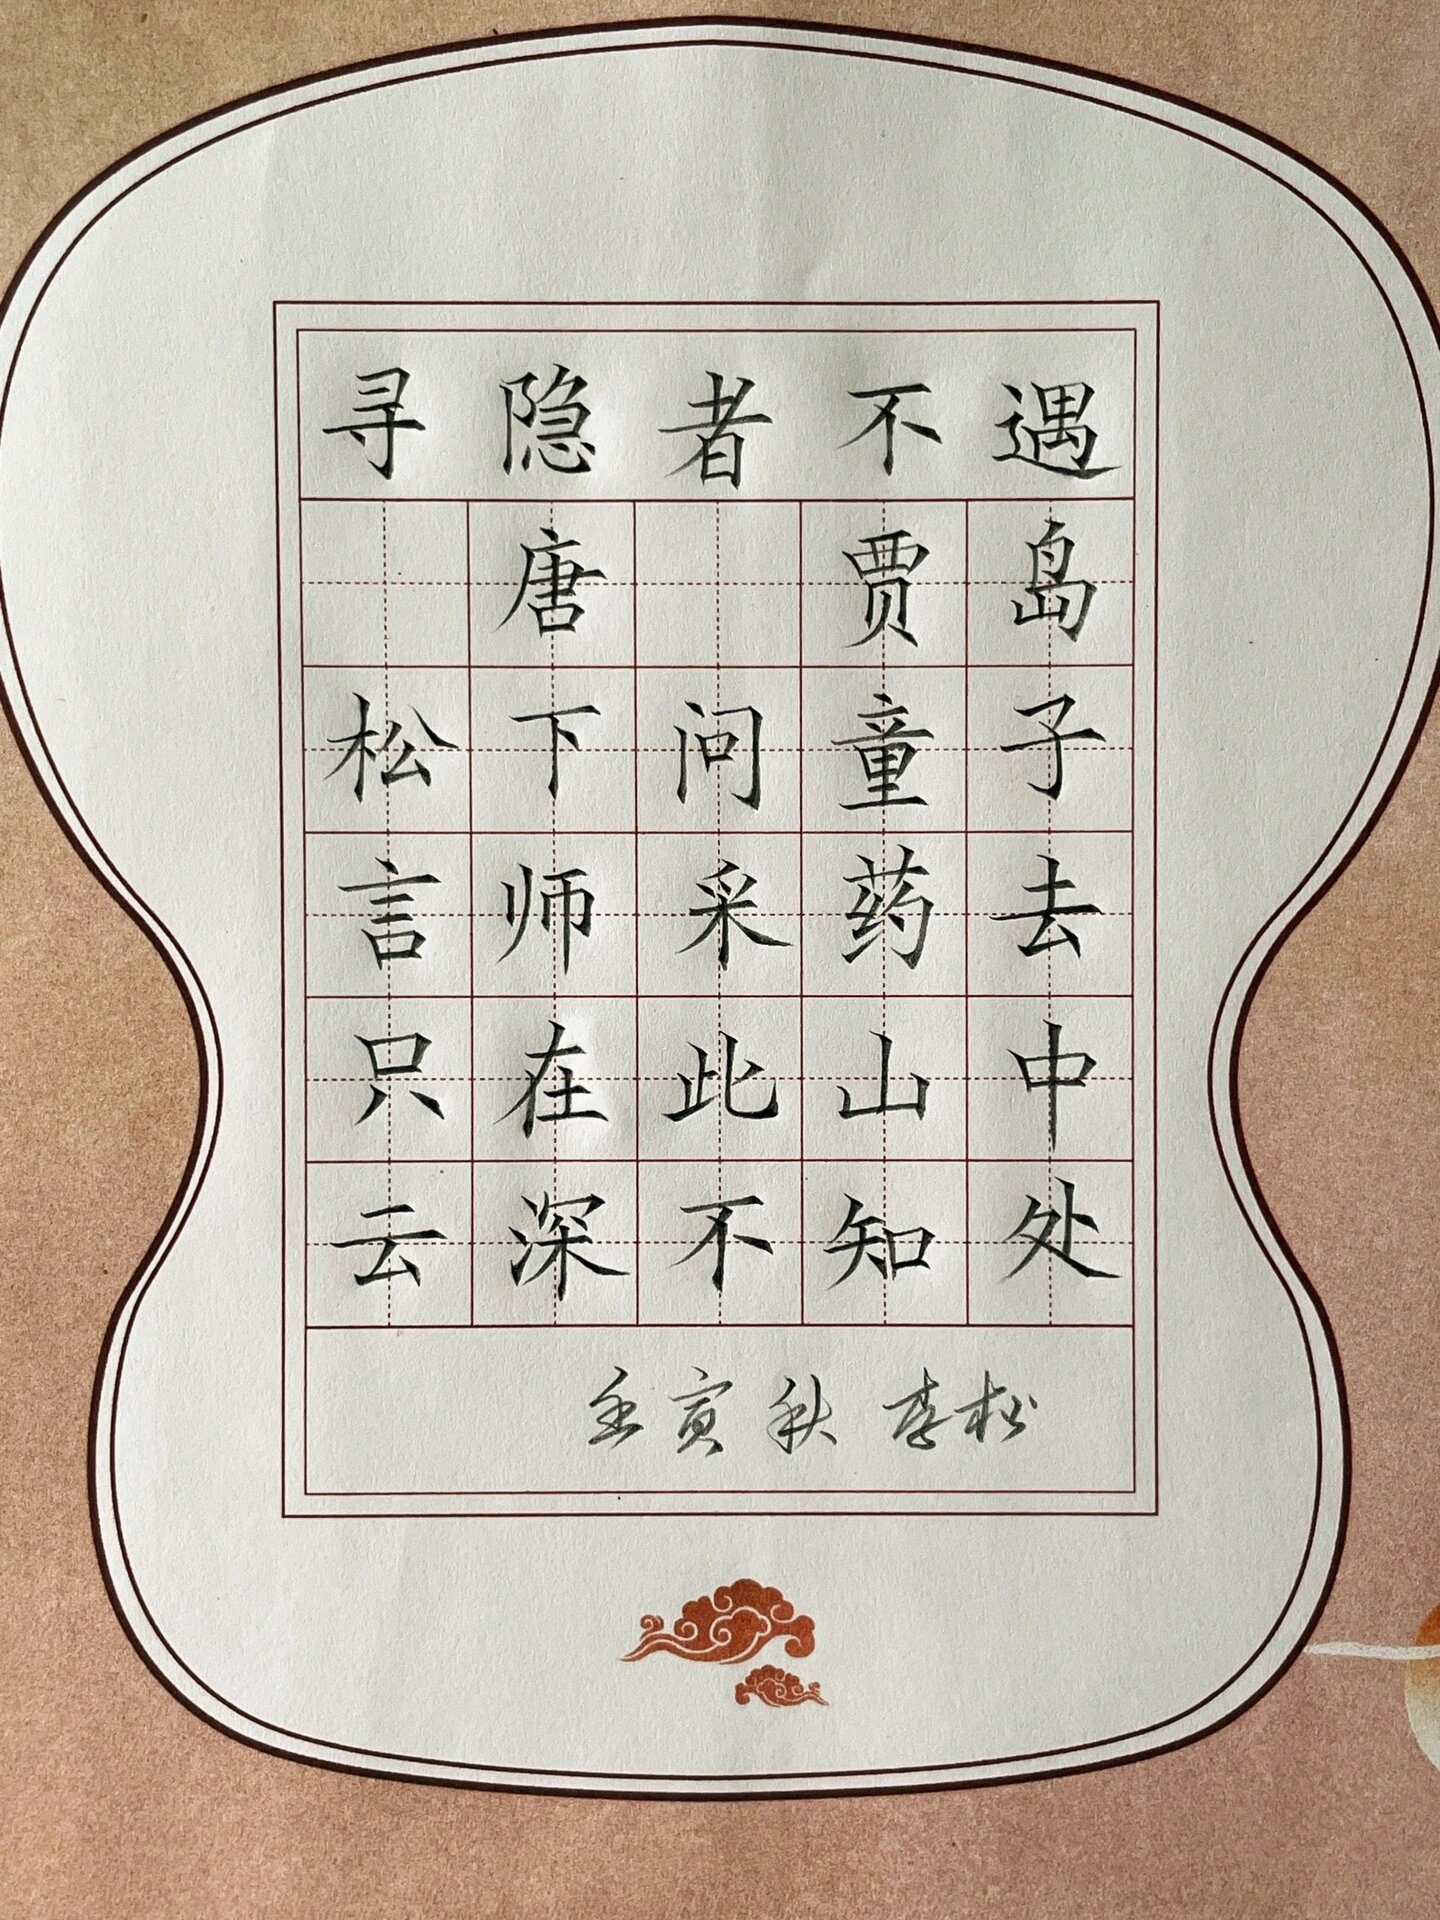 寻隐者不遇
唐 贾岛
松下问童子
言师采药去
只在此山中
云深不知处
壬寅秋 李松